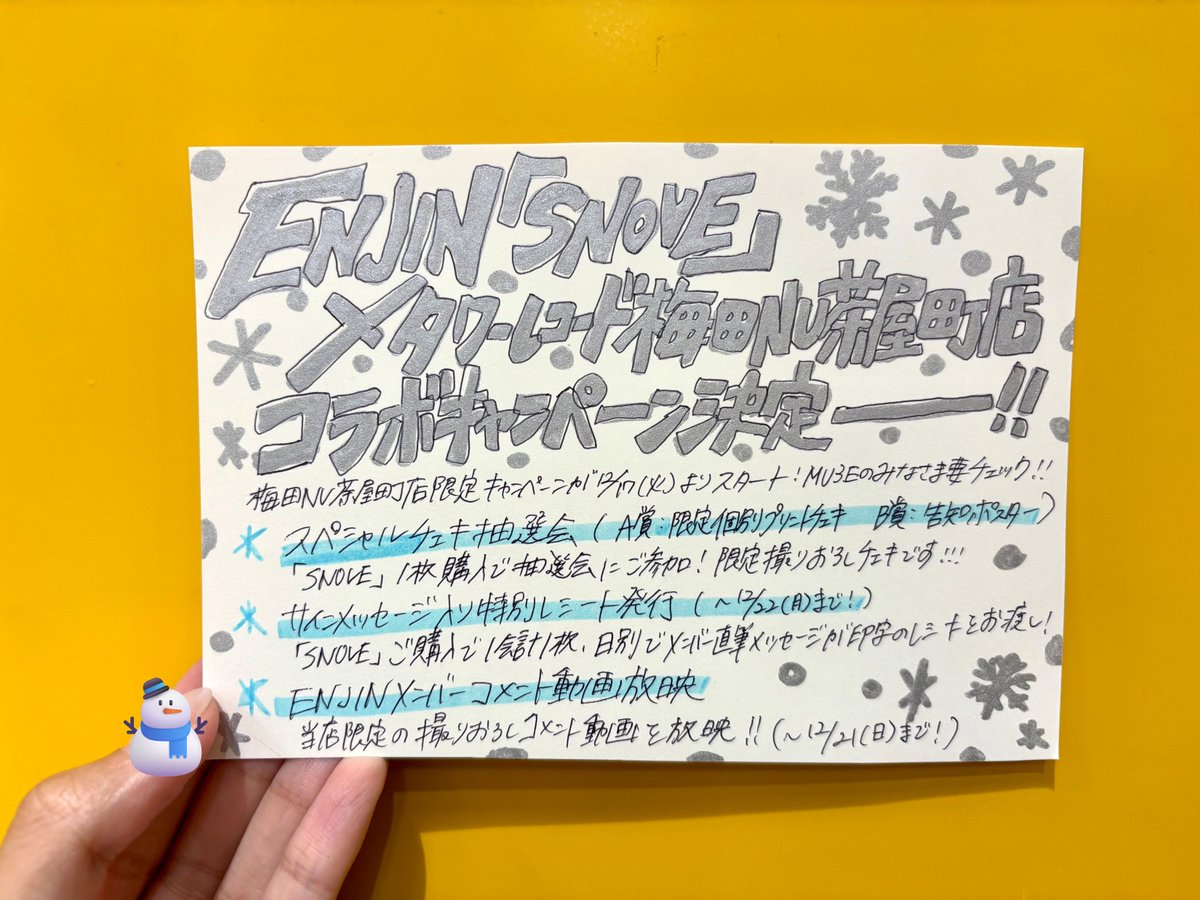 ENJIN「SNOVE」
×タワーレコード梅田NU茶屋町店
コラボキャンペーン決定――!!
梅田NU茶屋町店限定キャンペーンが12/17(火)よりスタート!MU3Eのみなさま要チェック!!
* スペシャルチェキ抽選会(A賞:限定個別プリントチェキ B賞:告知ポスター)
「SNOVE」1枚購入で抽選会にご参加!限定撮りおろしチェキです!!!
* サインメッセージ入り特別レシート発行(~12/22(月)まで!)
「SNOVE」ご購入で1会計1枚、日別でメンバー直筆メッセージが印字のレシートをお渡し!
* ENJINメンバーコメント動画放映
当店限定の撮りおろしコメント動画を放映!!(~12/21(日)まで!)